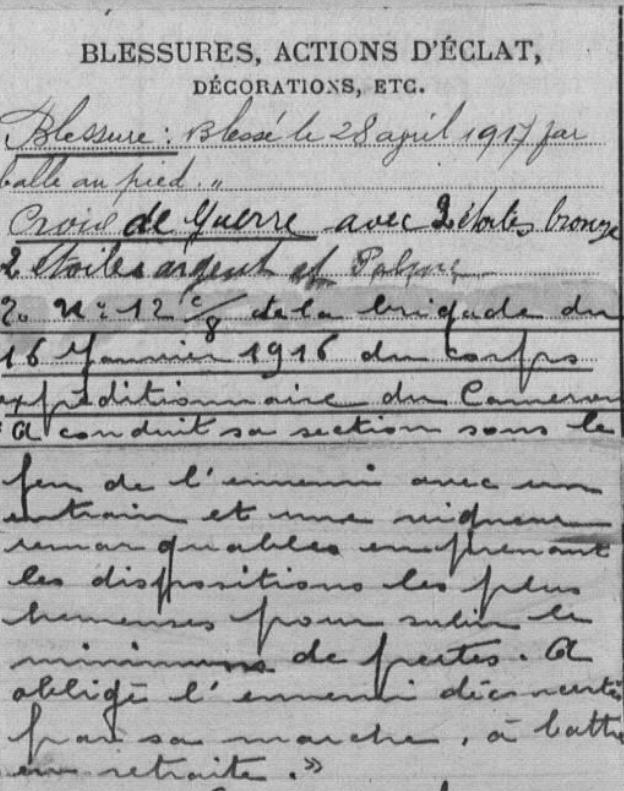 BLESSURES, ACTIONS D'ÉCLAT,
DÉCORATIONS, ETC.
Blessure : Blessé le 28 avril 1917 par
balle au pied. "
Croix de Guerre avec 2 étoiles bronze
2 étoiles argent et Palme
N° 12 de la brigade du
16 Janvier 1916 du corps
expéditionnaire du Cameroun
"A conduit sa section sous le
feu de l'ennemi avec un
entrain et une vigueur
remarquables en prenant
les dispositions les plus
heureuses pour subir le
minimum de pertes. A
obligé l'ennemi déconcerté
par sa marche, à battre
en retraite."